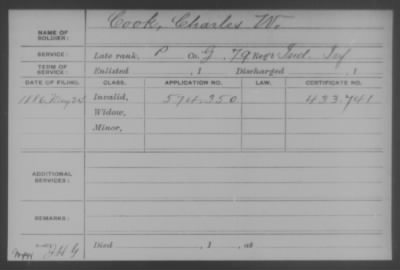 NAME OF SOLDIER: Cook, Charles W.
SERVICE: Late rank, P Co. G, 79 Reg't Ind. Inf
TERM OF SERVICE: Enlisted , 1 Discharged , 1
DATE OF FILING. CLASS. APPLICATION NO. LAW. CERTIFICATE NO.
1886 Invalid, 574.350 433.741
Widow,
Minor,
ADDITIONAL SERVICES:
REMARKS:
Died , 1 , at